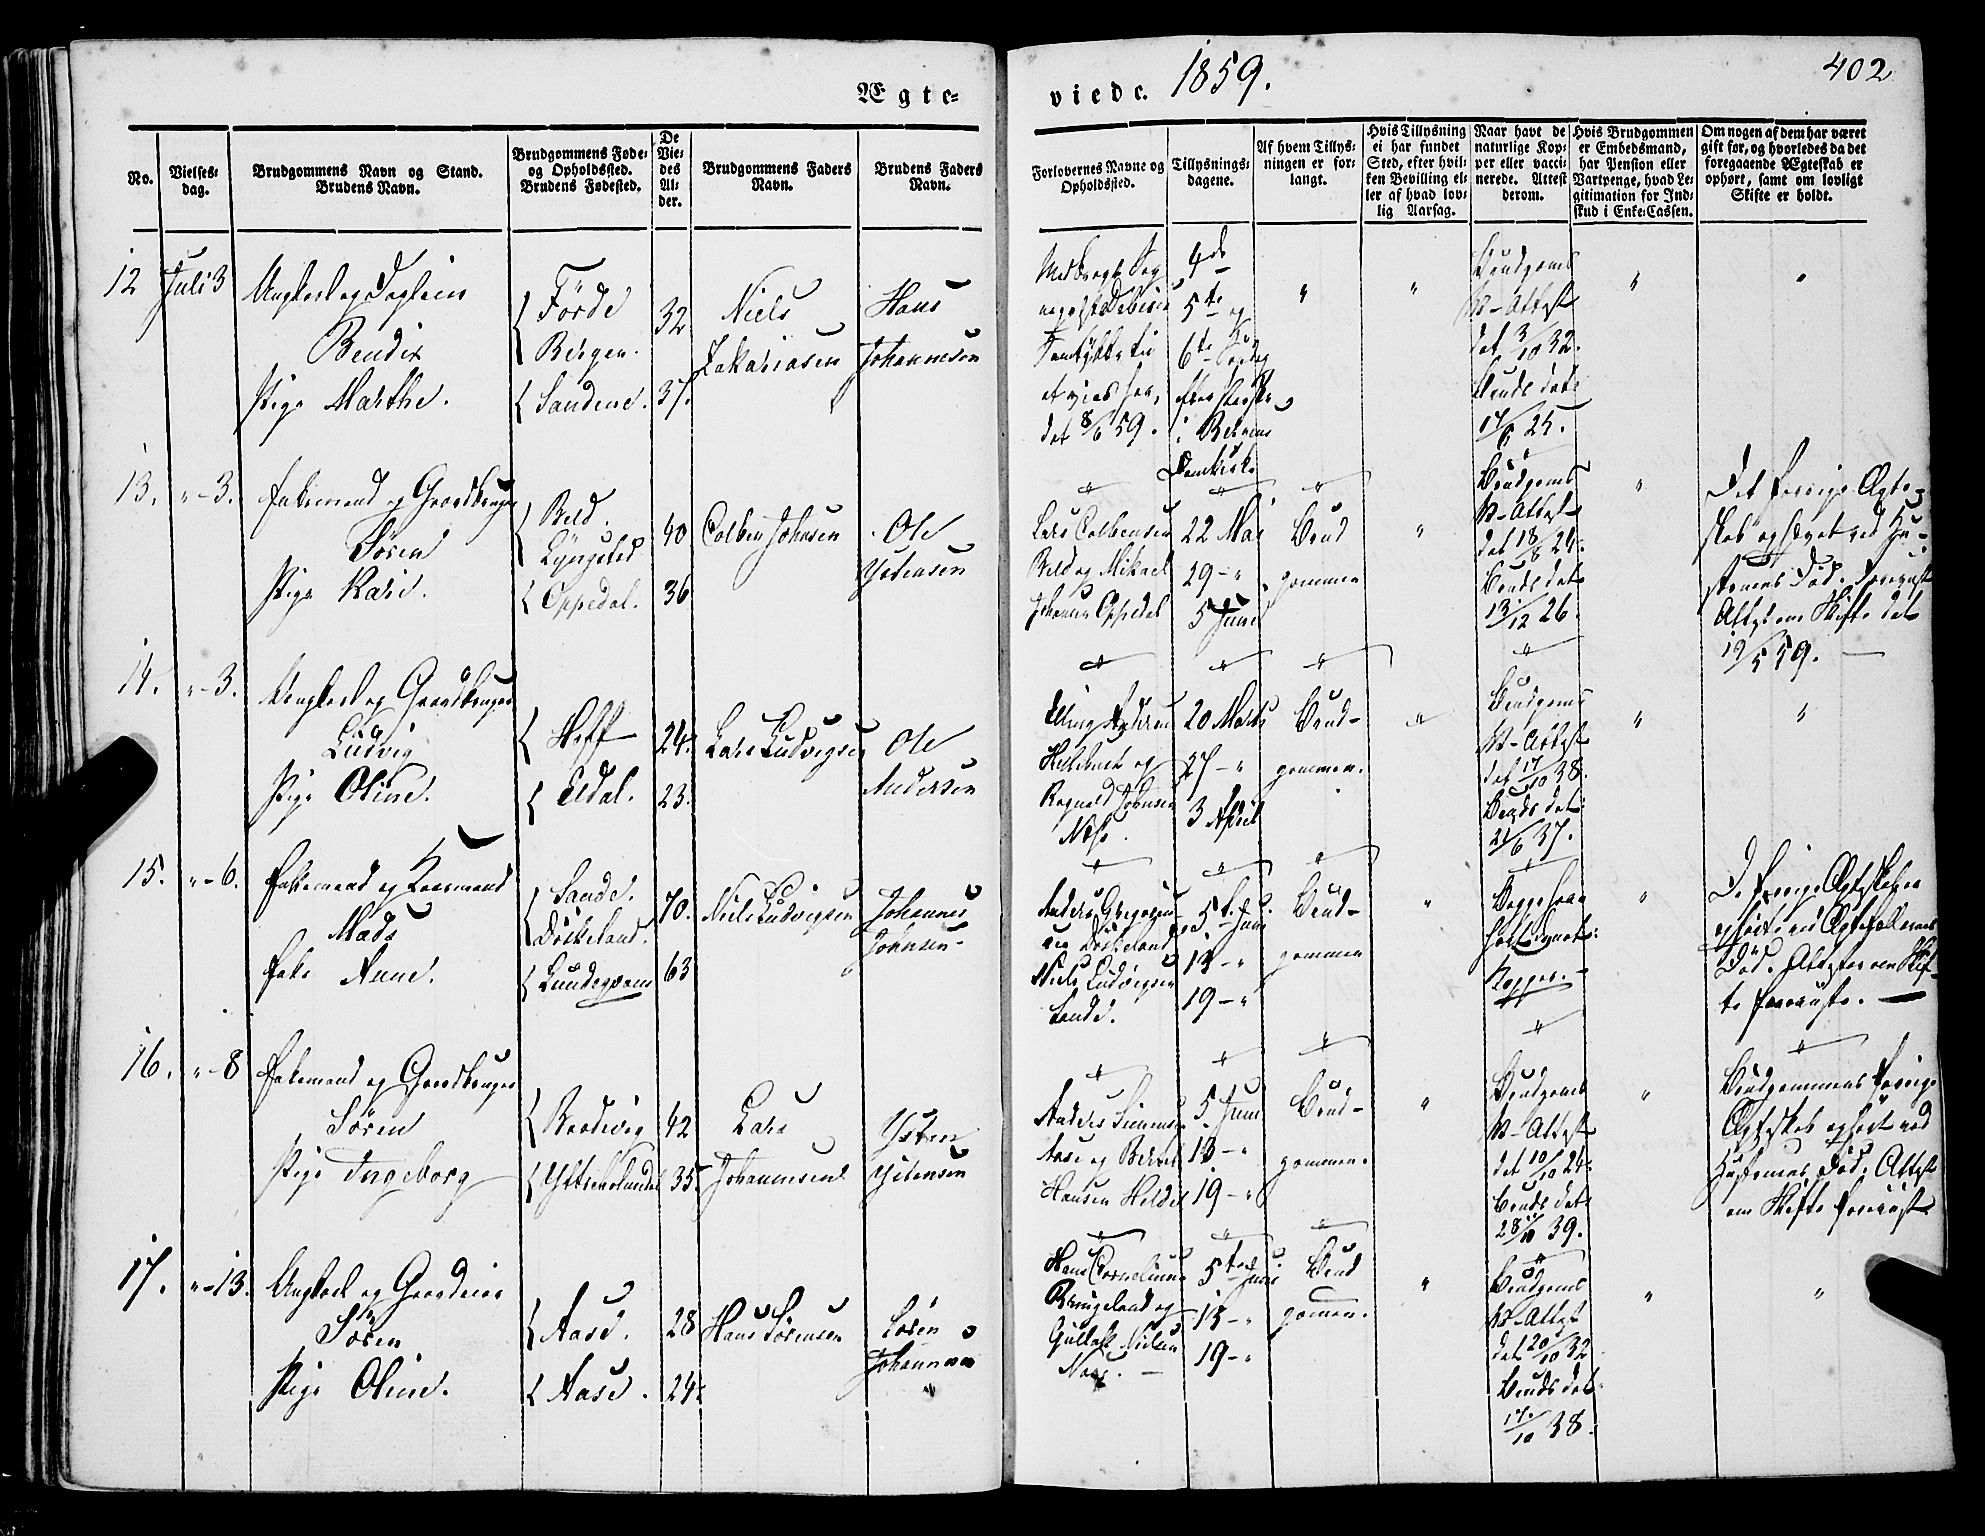 Ægte-
viede. 1859.
402
No.
Vielses-
dag.
Brudgommens Navn og Stand.
Brudens Navn.
Brudgommens Føde-
og Opholdssted.
Brudens Fødested.
De
Vie-
des
Al-
der.
Brudgommens Faders
Navn.
Brudens Faders
Navn.
Forlovernes Navne og
Opholdssted.
Tillysnings-
dagene.
Af hvem Tillys-
ningen er for-
langt.
Hvis Tillysning
ei har fundet
Sted, efter hvil-
ken Bevilling el-
ler af hvad lov-
lig Aarsag.
Naar havt de
naturlige Kop-
per eller vacci-
nerede. Attest
derom.
Hvis Brudgommen
er Embedsmand,
har Pension eller
Vartpenge, hvad Le-
gitimation for Ind-
skud i Enke-Cassen.
Om nogen af dem har været
gift før, og hvorledes da det
foregaaende Ægteskab er
ophørt, samt om lovligt
Skifte er holdt.
12 Juli 3 Ungkarl og
Bendix
Pige Marthe.
Förde
Bergen.
Sandene.
32
37.
Niels
Zakariasen
Hans
Johannesen
4de
5te og
6te
i
Domkirke
Brudgoms
V-Attest
dat 3/10 32.
Bruds dat
13. " - 3. Enkemand og Gaardbruger
Sören
Pige Kari.
Beld.
Lyngsted
Oppedal.
40
36
Colben Johnsen
Ole
Ystensen
Lars Colbensen
Beld og Mikael
Johannes Oppedal
22 Mai
29 - "
5 Juni
Brud
gommen
Brudgoms
V-Attest
dat 18/8 24.
Bruds dat
13/12 26.
Det forrige Ægte-
skab ophævet ved Hu-
struens Död. Foreviist
Attest om Skifte dat
19/5 59.
14. " - 3. Ungkarl og Gaardbruger
Ludvig
Pige Oline.
Hoff
Eldal.
24.
23.
Lars Ludvigsen
Ole
Andersen
Ragnald Johnsen
20 Marts
27 - "
3 April
Brud-
gommen.
Brudgoms
V-Attest
dat 17/10 38.
Bruds dat
21/6 37.
15. " - 6. Enkemand og Kaarmand
Mads
Enke Anne.
Sande.
Döskeland.
70.
63
Niels Ludvigsen
Johannes
Johnsen
Döskeland
Niels Ludvigsen
Sande.
5te Juni
13 - "
19 - "
Brud-
gommen
Begge have
havt
Kopper.
De forrige Ægteskaber
ophört ved Ægtefællernes
Död. Attester om Skif-
te foreviiste.
16. " - 8 Enkemand og Gaardbruger
Sören
Pige Ingeborg
42
35.
Lars
Johannesen
Ysten
Ystensen
Anders Simonsen
Aase og
Hansen
5. Juni
13 - "
19 - "
Brud-
gommen.
Brudgoms
V-Attest
dat 10/10 24.
Bruds dat
28/10 39.
Brudgommens forrige
Ægteskab ophört ved
Hustruens Död. Attest
om Skifte foreviist
17. " - 13. Ungkarl og Gaardeier
Sören
Pige Oline.
Aase.
Aase.
28
24.
Hans Sörensen
Sören
Johannesen
Hans Cornelius
Bringeland og
Gullak Nielsen
5te Juni
13 - "
19 - "
Brud
gommen.
Brudgoms
V-Attest
dat 20/10 32
Bruds dat
17/10 38.